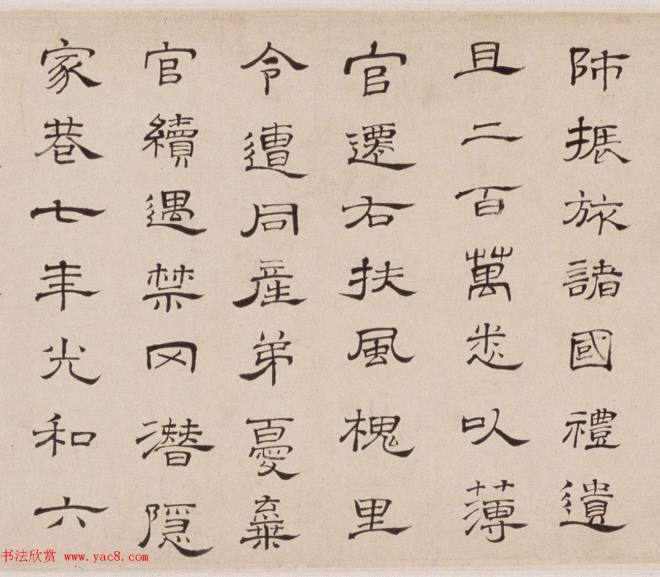 師振旅諸國禮遺
且二百萬悉以薄
官遷右扶風槐里
令遭同産弟憂棄
官續遇禁冈潛隱
家巷七年光和六
书法欣赏 www.yac8.com